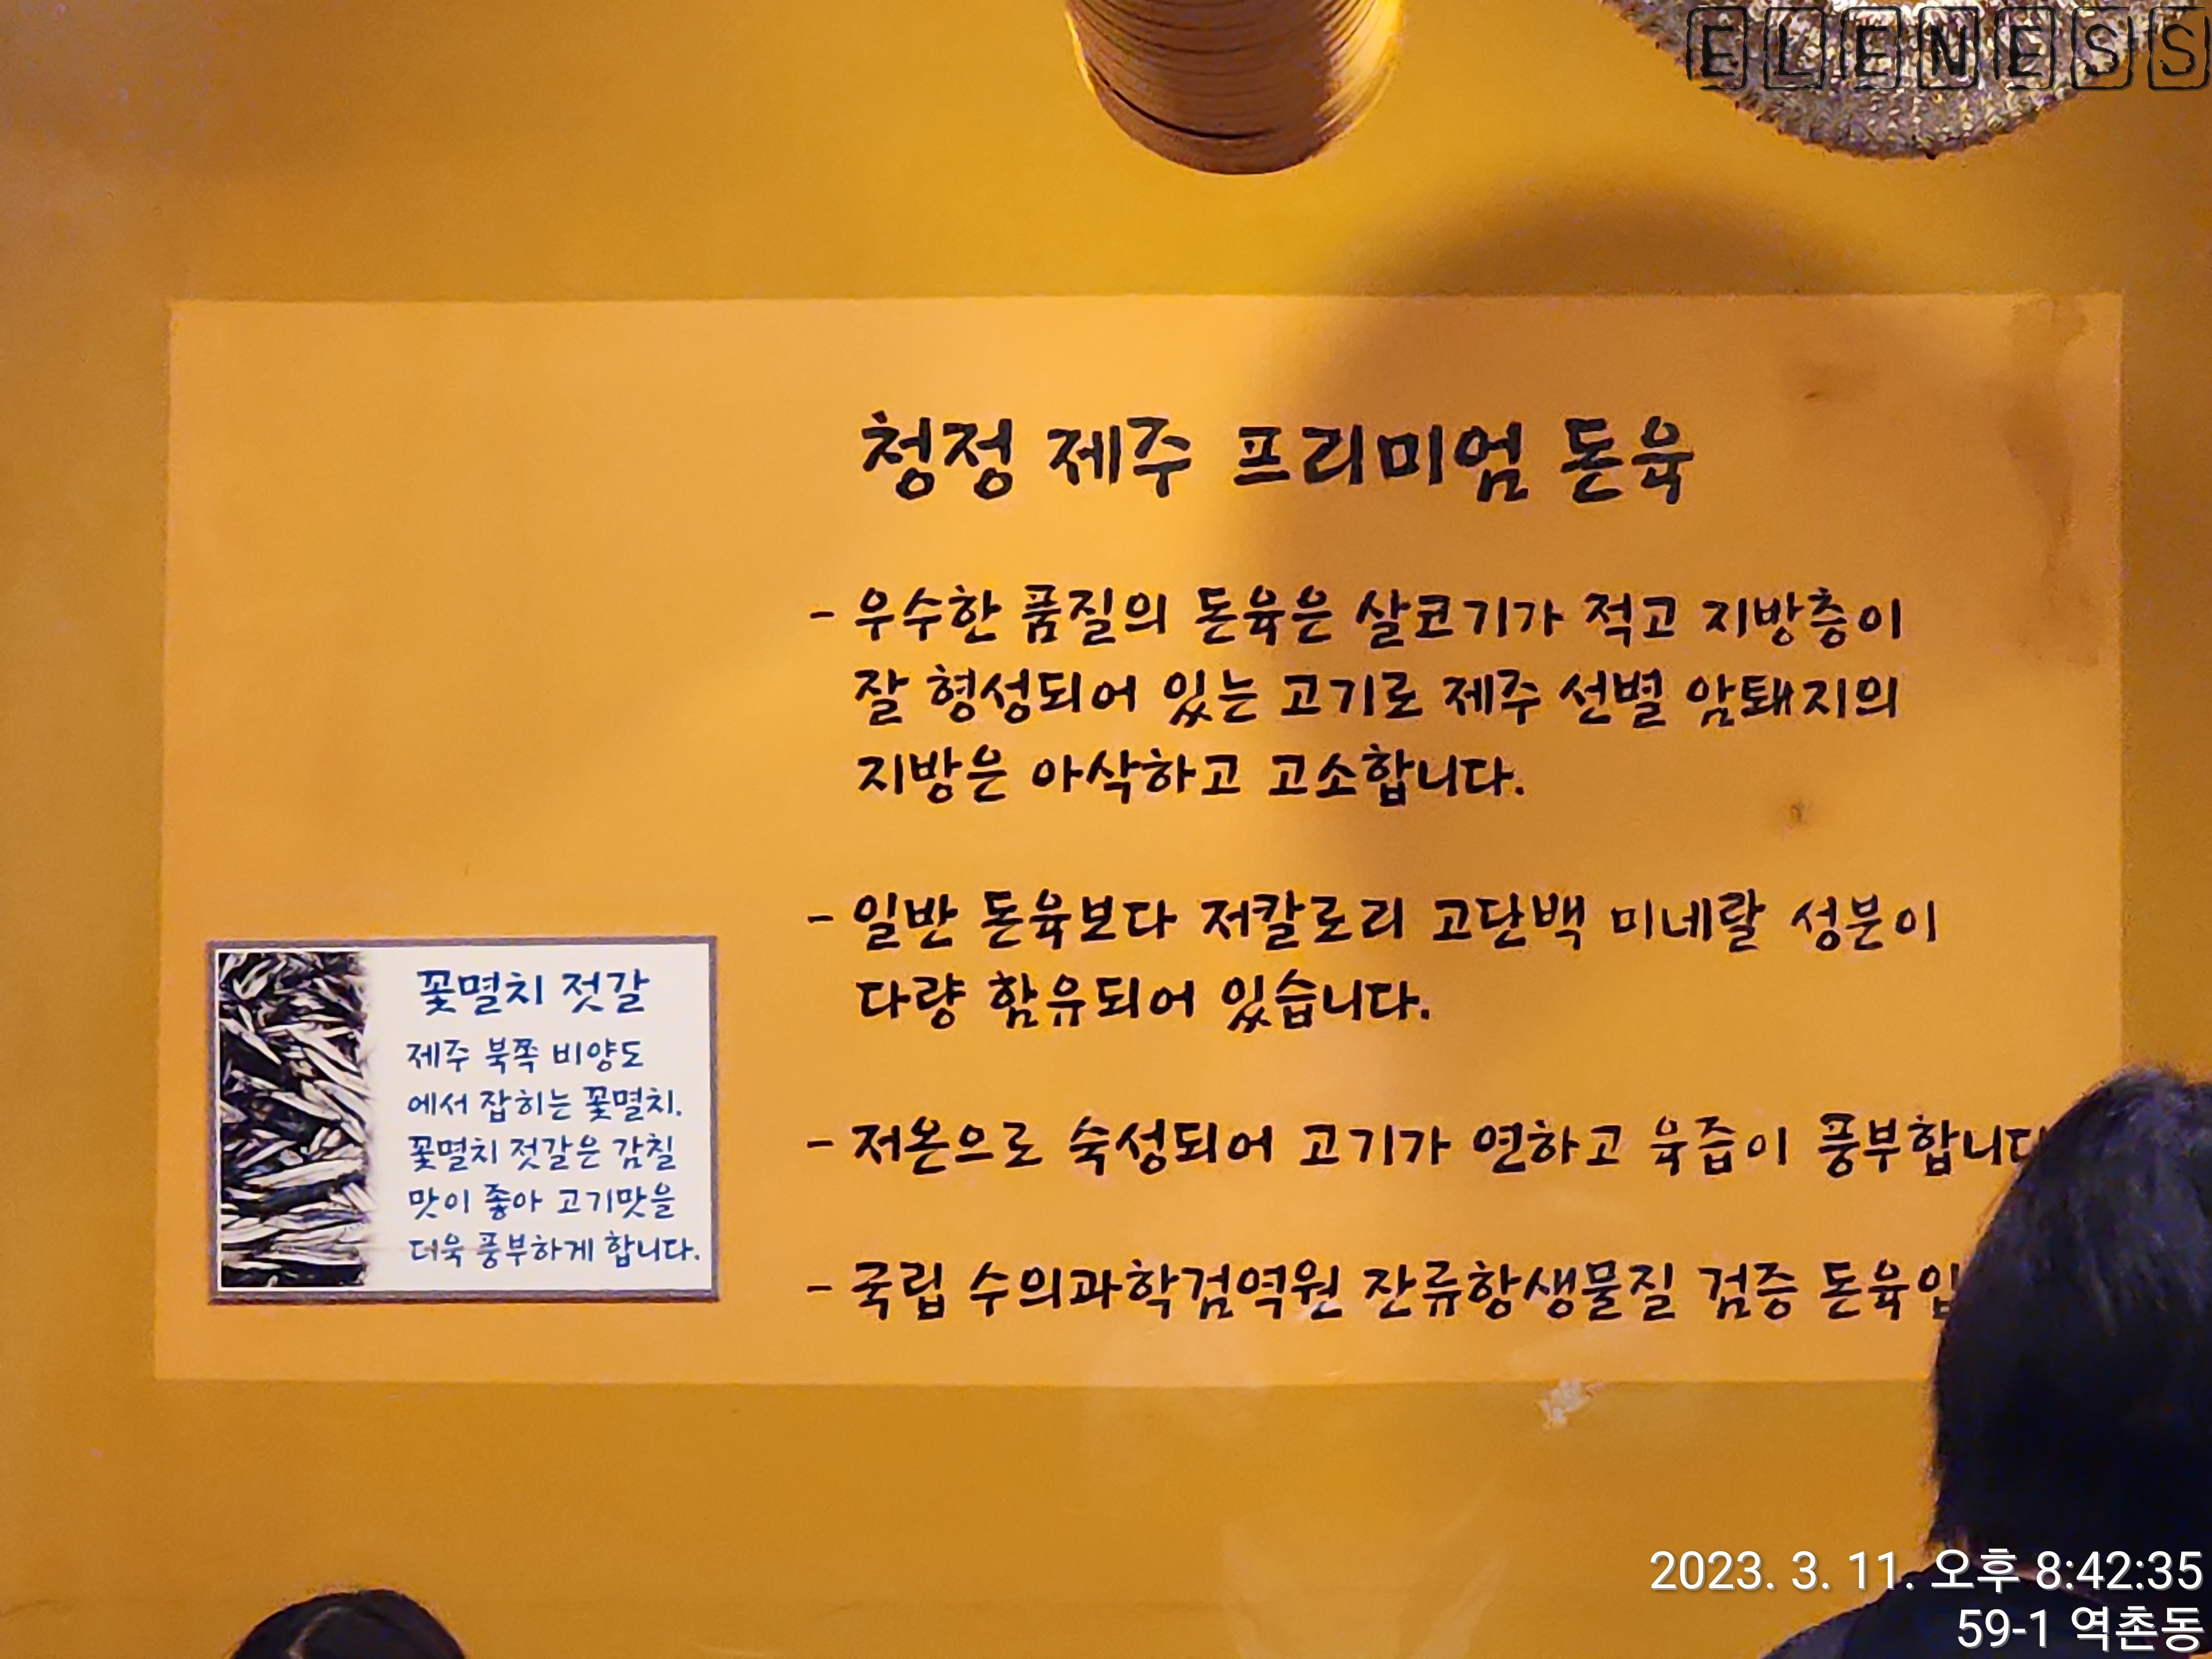 ELENESS
청정 제주 프리미엄 돈육
- 우수한 품질의 돈육은 살코기가 적고 지방층이
잘 형성되어 있는 고기로 제주 선별 암퇘지의
지방은 아삭하고 고소합니다.
- 일반 돈육보다 저칼로리 고단백 미네랄 성분이
다량 함유되어 있습니다.
- 저온으로 숙성되어 고기가 연하고 육즙이 풍부합니다
- 국립 수의과학검역원 잔류항생물질 검증 돈육입
꽃멸치 젓갈
제주 북쪽 비양도
에서 잡히는 꽃멸치.
꽃멸치 젓갈은 감칠
맛이 좋아 고기맛을
더욱 풍부하게 합니다.
2023. 3. 11. 오후 8:42:35
59-1 역촌동